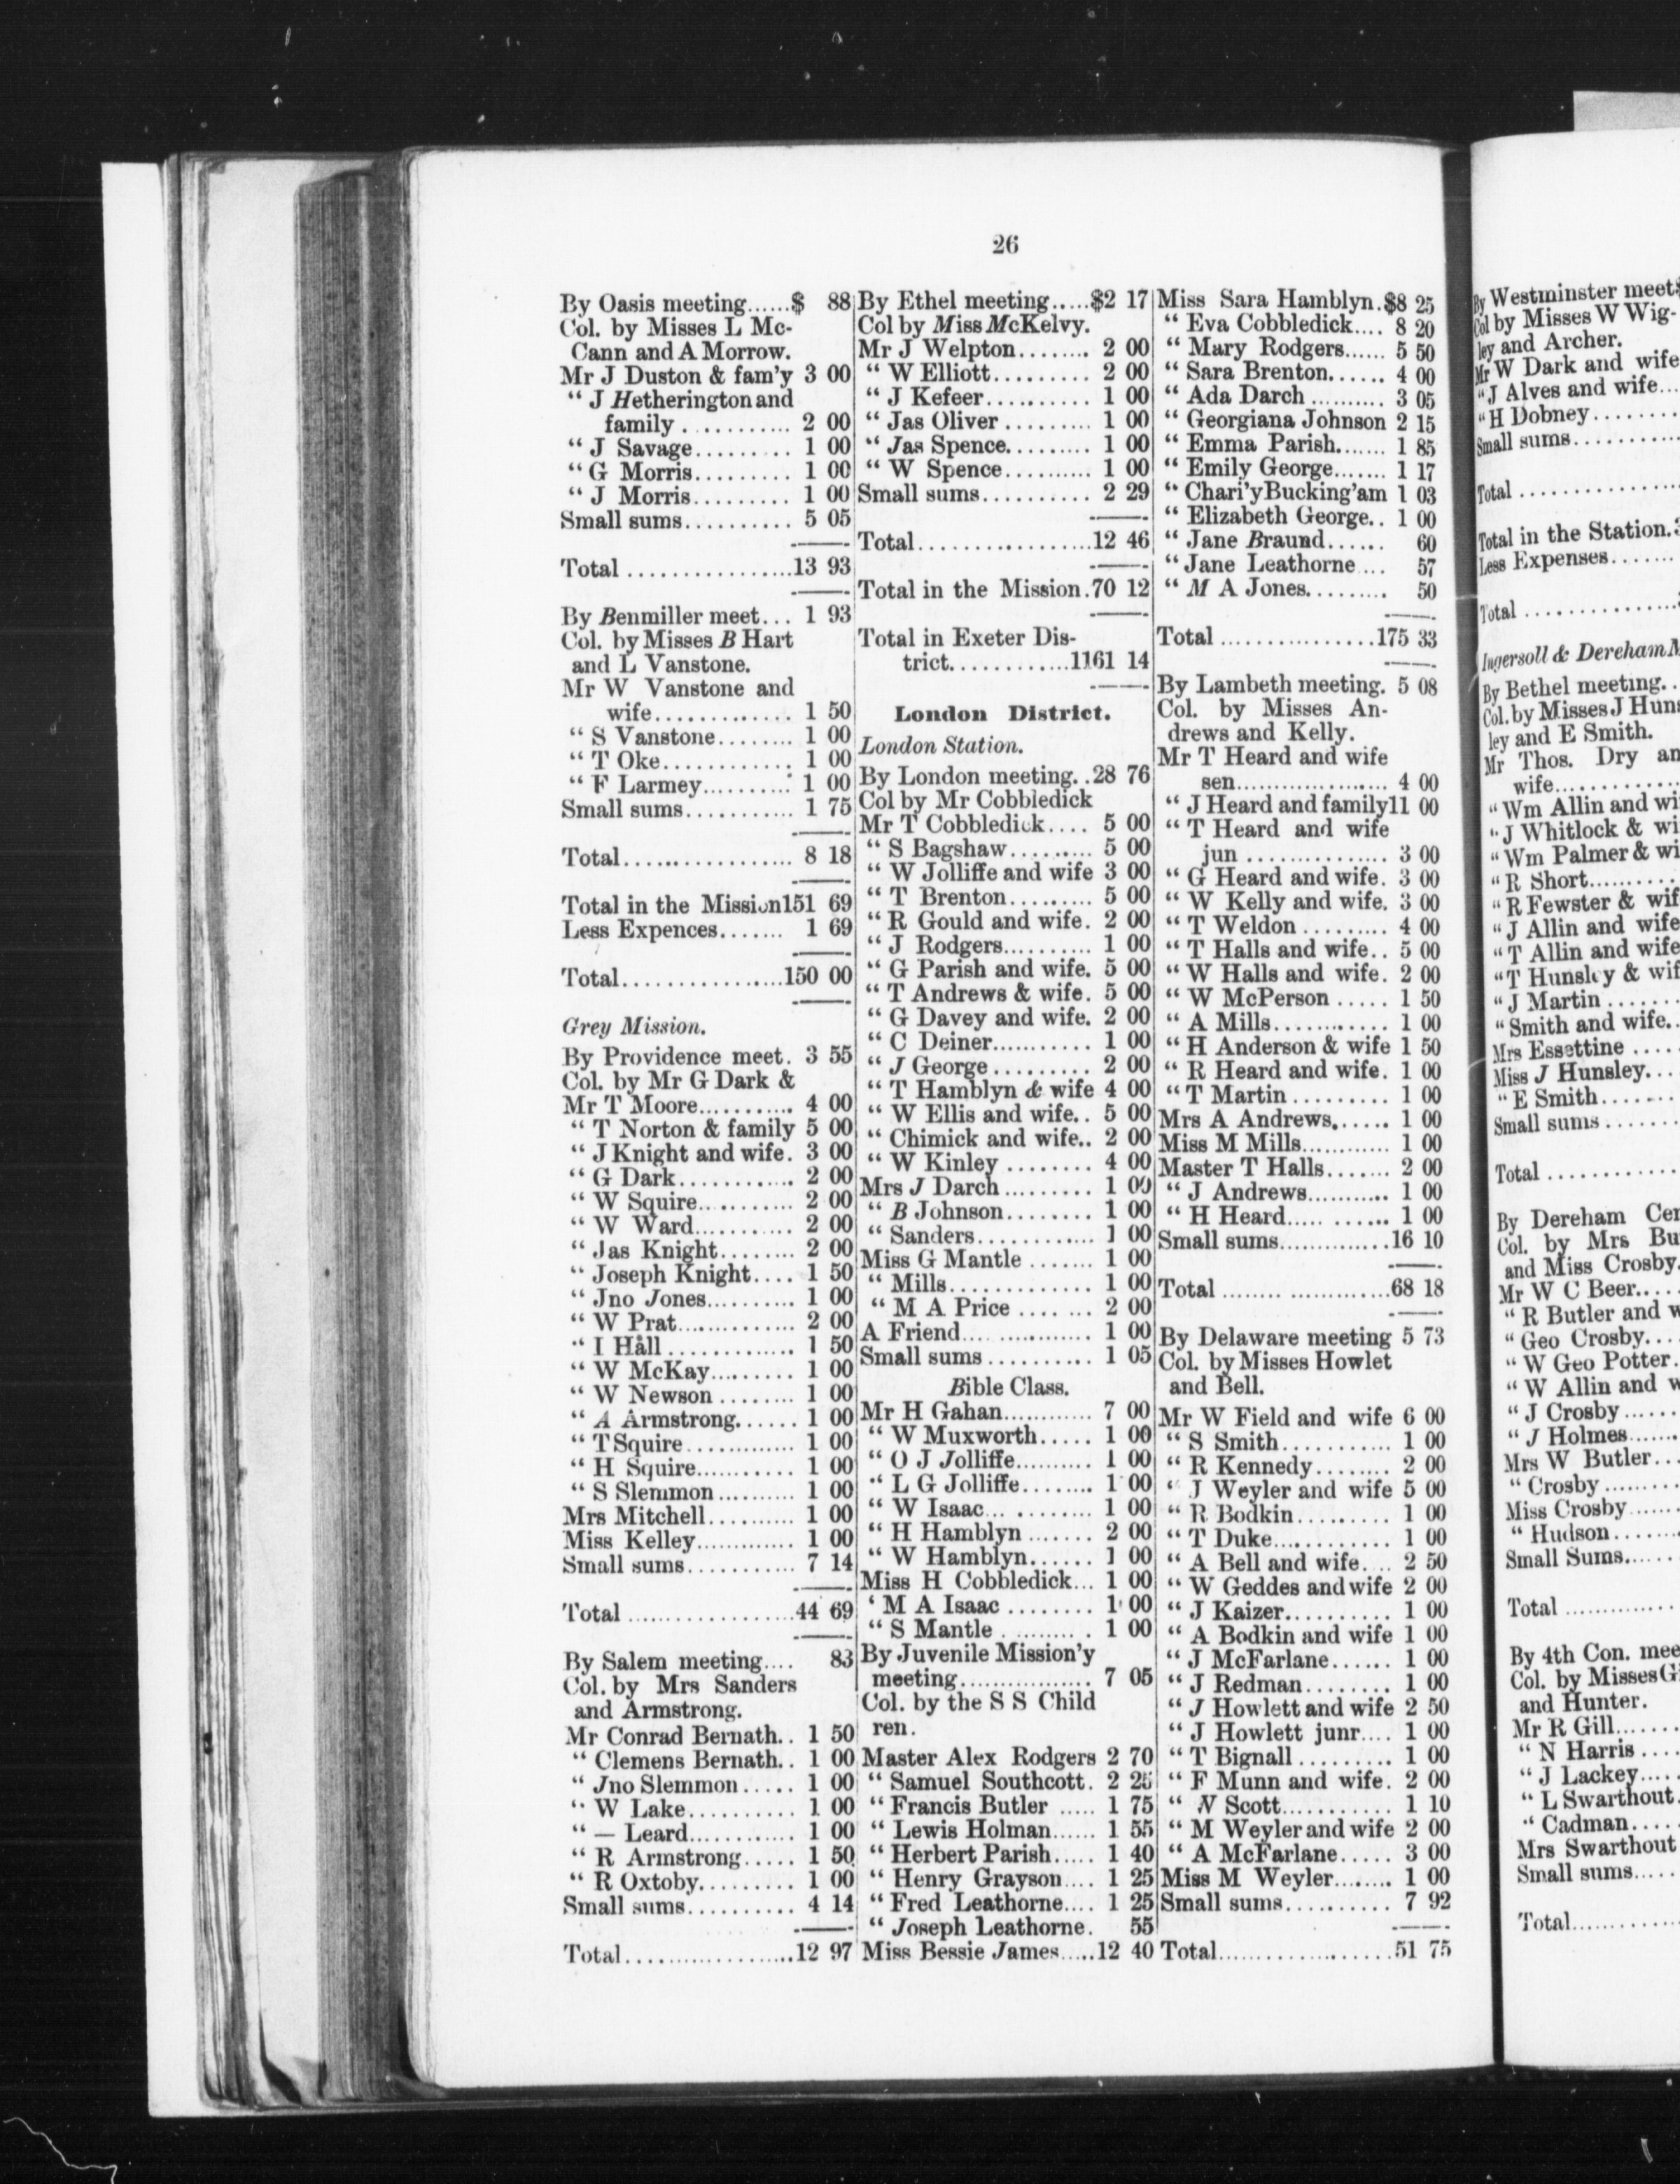 26
By Oasis meeting......$ 88
Col. by Misses L Mc-
Cann and A Morrow.
Mr J Duston & fam'y 3 00
" J Hetherington and
family ........... 2 00
" J Savage......... 1 00
" G Morris......... 1 00
" J Morris......... 1 00
Small sums.......... 5 05
Total ................13 93
By Benmiller meet... 1 93
Col. by Misses B Hart
and L Vanstone.
Mr W Vanstone and
wife............. 1 50
" S Vanstone........ 1 00
" T Oke............ 1 00
" F Larmey......... 1 00
Small sums........... 1 75
Total................. 8 18
Total in the Mission151 69
Less Expences....... 1 69
Total................150 00
Grey Mission.
By Providence meet. 3 55
Col. by Mr G Dark &
Mr T Moore........... 4 00
" T Norton & family 5 00
" J Knight and wife. 3 00
" G Dark............ 2 00
" W Squire........... 2 00
" W Ward............ 2 00
" Jas Knight........ 2 00
" Joseph Knight.... 1 50
" Jno Jones.......... 1 00
" W Prat............. 2 00
" I Hall ............. 1 50
" W McKay......... 1 00
" W Newson ........ 1 00
" A Armstrong...... 1 00
" T Squire............. 1 00
" H Squire........... 1 00
" S Slemmon.......... 1 00
Mrs Mitchell.......... 1 00
Miss Kelley............. 1 00
Small sums........... 7 14
Total .................44 69
By Salem meeting.... 83
Col. by Mrs Sanders
and Armstrong.
Mr Conrad Bernath.. 1 50
" Clemens Bernath.. 1 00
" Jno Slemmon..... 1 00
" W Lake........... 1 00
" — Leard............ 1 00
" R Armstrong..... 1 50
" R Oxtoby......... 1 00
Small sums.......... 4 14
Total..................12 97
By Ethel meeting.....$2 17
Col by Miss McKelvy.
Mr J Welpton........ 2 00
" W Elliott.......... 2 00
" J Kefeer........... 1 00
" Jas Oliver ......... 1 00
" Jas Spence......... 1 00
" W Spence.......... 1 00
Small sums........... 2 29
Total..................12 46
Total in the Mission.70 12
Total in Exeter Dis-
trict............1161 14
London District.
London Station.
By London meeting..28 76
Col by Mr Cobbledick
Mr T Cobbledick.... 5 00
" S Bagshaw......... 5 00
" W Jolliffe and wife 3 00
" T Brenton......... 5 00
" R Gould and wife. 2 00
" J Rodgers.......... 1 00
" G Parish and wife. 5 00
" T Andrews & wife. 5 00
" G Davey and wife. 2 00
" C Deiner........... 1 00
" J George.......... 2 00
" T Hamblyn & wife 4 00
" W Ellis and wife.. 5 00
" Chimick and wife.. 2 00
" W Kinley ........ 4 00
Mrs J Darch......... 1 00
" B Johnson........ 1 00
" Sanders............ 1 00
Miss G Mantle ....... 1 00
" Mills.............. 1 00
" M A Price ....... 2 00
A Friend............... 1 00
Small sums.......... 1 05
Bible Class.
Mr H Gahan............ 7 00
" W Muxworth..... 1 00
" O J Jolliffe.......... 1 00
" L G Jolliffe........ 1 00
" W Isaac............ 1 00
" H Hamblyn ....... 2 00
" W Hamblyn...... 1 00
Miss H Cobbledick... 1 00
' M A Isaac ........ 1 00
" S Mantle .......... 1 00
By Juvenile Mission'y
meeting................ 7 05
Col. by the S S Child
ren.
Master Alex Rodgers 2 70
" Samuel Southcott. 2 25
" Francis Butler ..... 1 75
" Lewis Holman...... 1 55
" Herbert Parish..... 1 40
" Henry Grayson.... 1 25
" Fred Leathorne.... 1 25
" Joseph Leathorne. 55
Miss Bessie James.....12 40
Miss Sara Hamblyn.$8 25
" Eva Cobbledick.... 8 20
" Mary Rodgers...... 5 50
" Sara Brenton...... 4 00
" Ada Darch .......... 3 05
" Georgiana Johnson 2 15
" Emma Parish....... 1 85
" Emily George....... 1 17
" Chari'y Bucking'am 1 03
" Elizabeth George.. 1 00
" Jane Braund...... 60
" Jane Leathorne... 57
" M A Jones......... 50
Total ................175 33
By Lambeth meeting. 5 08
Col. by Misses An-
drews and Kelly.
Mr T Heard and wife
sen.................. 4 00
" J Heard and family11 00
" T Heard and wife
jun ............... 3 00
" G Heard and wife. 3 00
" W Kelly and wife. 3 00
" T Weldon ......... 4 00
" T Halls and wife.. 5 00
" W Halls and wife. 2 00
" W McPerson ..... 1 50
" A Mills............ 1 00
" H Anderson & wife 1 50
" R Heard and wife. 1 00
" T Martin .......... 1 00
Mrs A Andrews...... 1 00
Miss M Mills............ 1 00
Master T Halls....... 2 00
" J Andrews.......... 1 00
" H Heard........... 1 00
Small sums.............16 10
Total ....................68 18
By Delaware meeting 5 73
Col. by Misses Howlet
and Bell.
Mr W Field and wife 6 00
" S Smith............ 1 00
" R Kennedy........ 2 00
' J Weyler and wife 5 00
" R Bodkin......... 1 00
" T Duke............ 1 00
" A Bell and wife.... 2 50
" W Geddes and wife 2 00
" J Kaizer.......... 1 00
" A Bodkin and wife 1 00
" J McFarlane...... 1 00
" J Redman........ 1 00
" J Howlett and wife 2 50
" J Howlett junr.... 1 00
" T Bignall.......... 1 00
" F Munn and wife. 2 00
" N Scott........... 1 10
" M Weyler and wife 2 00
" A McFarlane..... 3 00
Miss M Weyler........ 1 00
Small sums.......... 7 92
Total...................51 75
By Westminster meet$
Col by Misses W Wig-
ley and Archer.
Mr W Dark and wife
" J Alves and wife...
" H Dobney........
Small sums..........
Total ................
Total in the Station.
Less Expenses.......
Total ................
Ingersoll & Dereham
By Bethel meeting..
Col. by Misses J Huns
ley and E Smith.
Mr Thos. Dry an
wife...........
" Wm Allin and wi
" J Whitlock & wi
" Wm Palmer & wi
" R Short..........
" R Fewster & wif
" J Allin and wife
" T Allin and wife
" T Hunsley & wif
" J Martin.......
" Smith and wife..
Mrs Essettine ....
Miss J Hunsley...
" E Smith.......
Small sums........
Total ............
By Dereham Cen
Col. by Mrs Bu
and Miss Crosby.
Mr W C Beer.....
" R Butler and w
" Geo Crosby....
" W Geo Potter.
" W Allin and w
" J Crosby......
" J Holmes......
Mrs W Butler...
" Crosby.........
Miss Crosby......
" Hudson.......
Small Sums......
Total .............
By 4th Con. mee
Col. by Misses G
and Hunter.
Mr R Gill.......
" N Harris....
" J Lackey.....
" L Swarthout.
" Cadman.....
Mrs Swarthout
Small sums.....
Total............